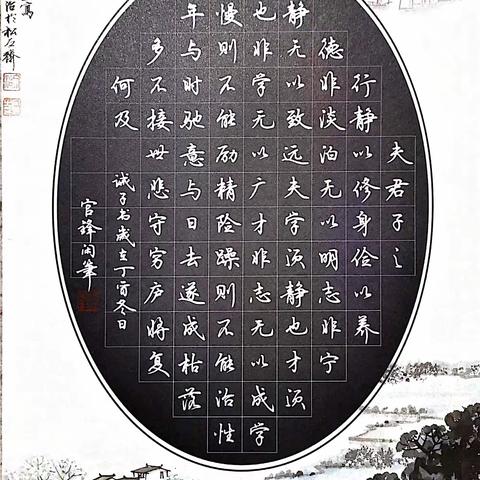 夫君子之
行静以修身俭以养
德非淡泊无以明志非宁
静无以致远夫学须静也才须
也非学无以广才非志无以成学
慢则不能励精险躁则不能治性
年与时驰意与日去遂成枯落
多不接世悲守穷庐将复
何及
诫子书岁在丁酉冬日
官锋闲笔
写